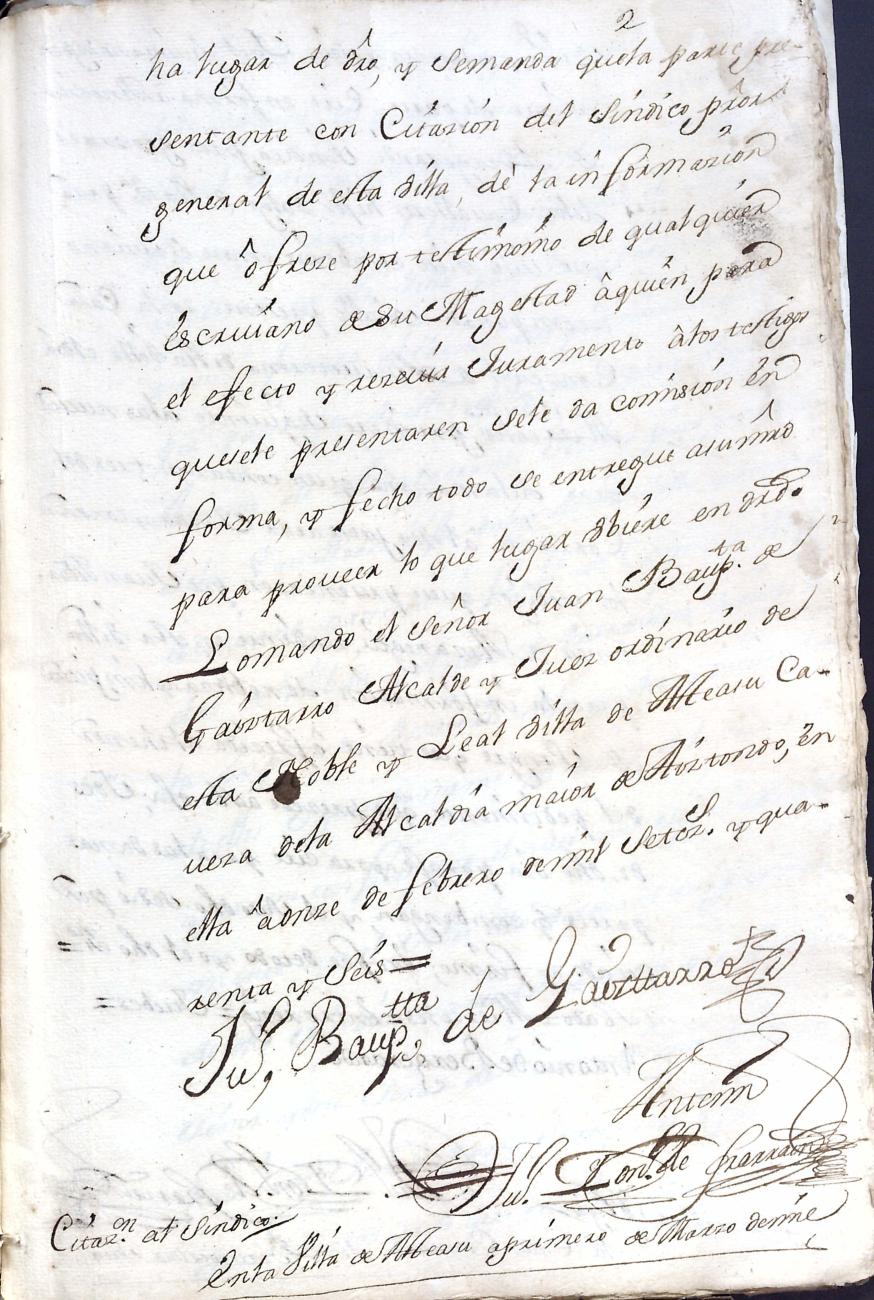 2
ha lugar de dro, y semanda quela parte pre-
sentante con Citazion del sindico pror
general de esta villa, dè la informazion
que ôfreze por testimonio de qualquier
Escriuano de Su Magestad âquien para
el efecto y rezeuir Juramento âlos testigos
quesele presentaren sele da comision en
forma, y fecho todo se entregue asumrd
para proveer lo que lugar vbiere en dro.
Lomando el señor Juan Baupta. de
Gaoztarro Alcalde y Juez ordinario de
esta Noble y Leal villa de Alleasu Ca-
ueza dela Alcaldia maior de Aiztondo, en
ella âonze de febrero demil Setezs. y qua-
renta y Seis =
Jun, Bauptta de Gaozttarro
Antemi
Jun. Lonzo de Larrain
Citazon al sindico.
Enla Villa de Alleasu aprimero de Marzo demile